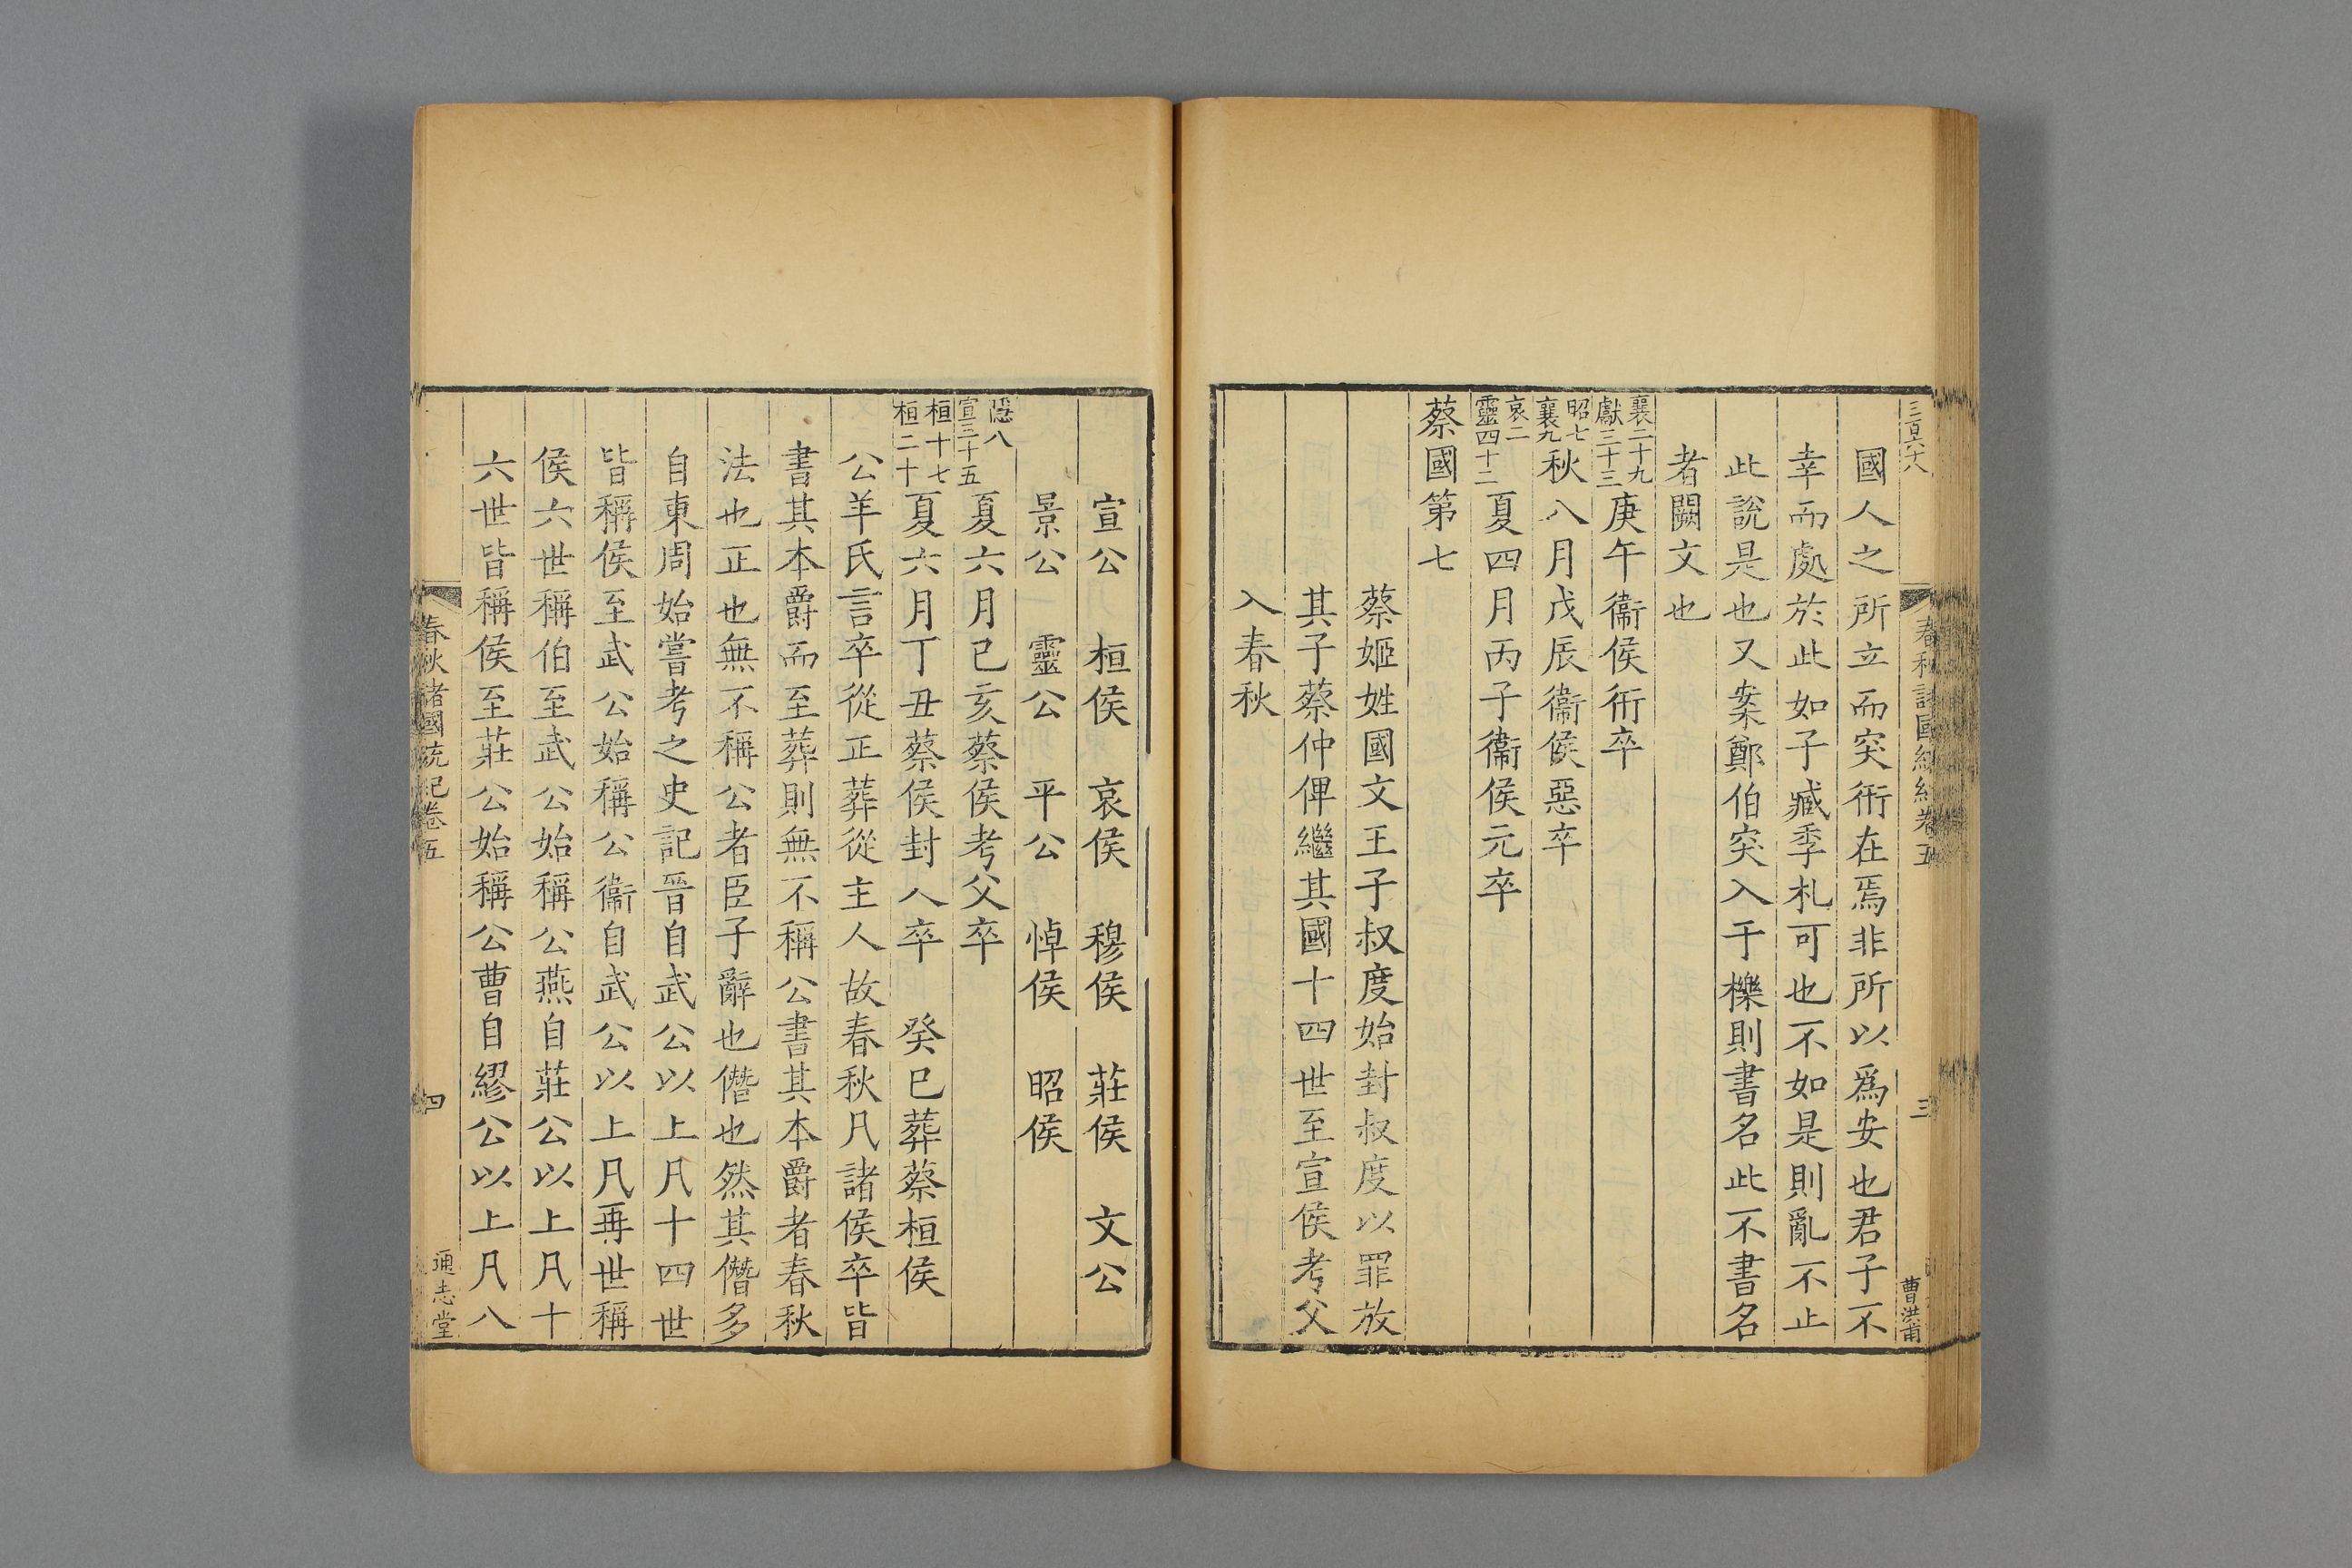 三百六十八
春秋諸國統紀卷五
三
曹洪甫
國人之所立而突衎在焉非所以爲安也君子不
幸而處於此如子臧季札可也不如是則亂不止
此說是也又案鄭伯突入于櫟則書名此不書名
者闕文也
襄二十九
獻三十三
庚午衞侯衎卒
昭七
襄九
秋八月戊辰衞侯惡卒
哀二
靈四十二
夏四月丙子衞侯元卒
蔡國第七
蔡姬姓國文王子叔度始封叔度以罪放
其子蔡仲俾繼其國十四世至宣侯考父
入春秋
宣公　桓侯　哀侯　穆侯　莊侯　文公
景公　靈公　平公　悼侯　昭侯
隱八
宣三十五
夏六月己亥蔡侯考父卒
桓十七
桓二十
夏六月丁丑蔡侯封人卒　癸巳葬蔡桓侯
公羊氏言卒從正葬從主人故春秋凡諸侯卒皆
書其本爵而至葬則無不稱公書其本爵者春秋
法也正也無不稱公者臣子辭也僭也然其僭多
自東周始嘗考之史記晉自武公以上凡十四世
皆稱侯至武公始稱公衞自武公以上凡再世稱
侯六世稱伯至武公始稱公燕自莊公以上凡十
六世皆稱侯至莊公始稱公曹自繆公以上凡八
春秋諸國統紀卷五
四
通志堂